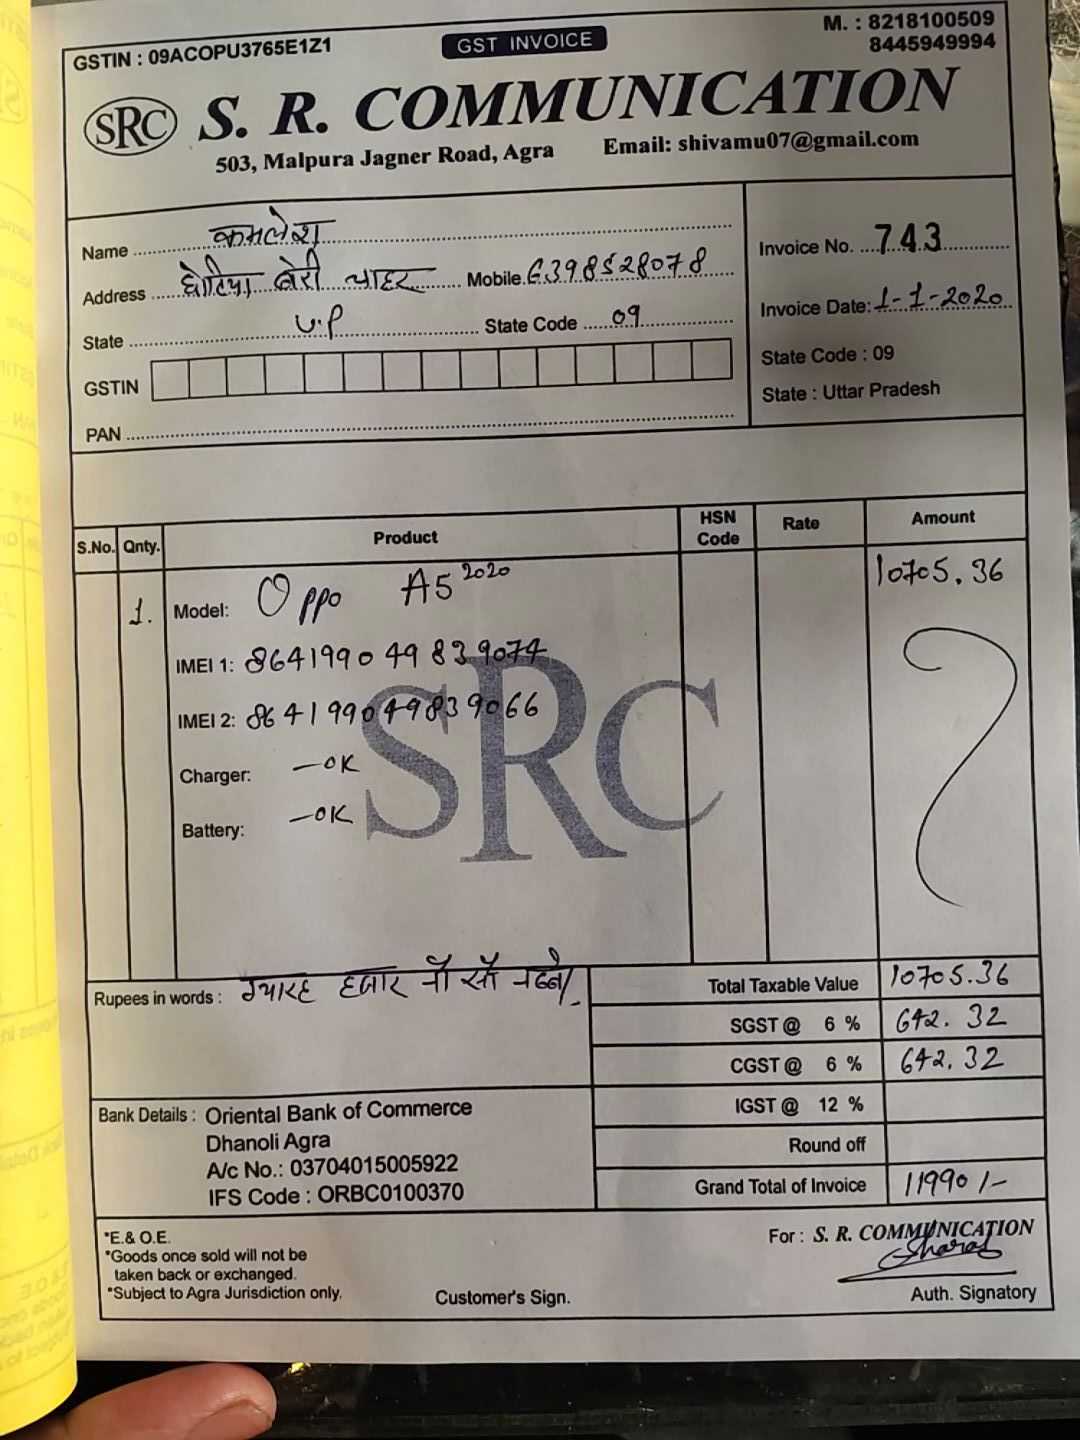 GSTIN : 09ACOPU3765E1Z1
GST INVOICE
M. : 8218100509
8445949994
SRC S. R. COMMUNICATION
503, Malpura Jagner Road, Agra Email: shivamu07@gmail.com
Name कमलेश
Address बेरी चाहर Mobile. 6398528078
State U.P State Code 09
GSTIN
PAN
Invoice No. 743
Invoice Date: 1-1-2020
State Code : 09
State : Uttar Pradesh
S.No. Qnty. Product HSN Code Rate Amount
1. Model: Oppo A5 2020 10705.36
IMEI 1: 864199049839074
IMEI 2: 864199049839066
Charger: -OK
Battery: -OK
SRC
Rupees in words : ग्यारह हजार नौ सौ नब्बे/.
Total Taxable Value 10705.36
SGST @ 6 % 642.32
CGST @ 6 % 642.32
IGST @ 12 %
Round off
Grand Total of Invoice 11990/-
Bank Details : Oriental Bank of Commerce
Dhanoli Agra
A/c No.: 03704015005922
IFS Code : ORBC0100370
*E.& O.E.
*Goods once sold will not be
taken back or exchanged.
*Subject to Agra Jurisdiction only.
Customer's Sign.
For : S. R. COMMUNICATION
Auth. Signatory